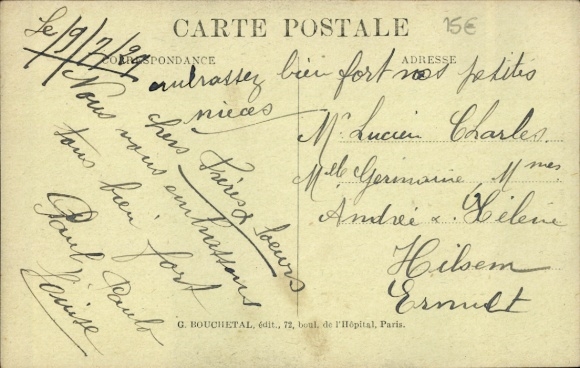 CARTE POSTALE
15€
CORRESPONDANCE
ADRESSE
Le 19/7/20
embrassez bien fort nos petites
nieces
chers Frères & Soeurs
Nous vous embrassons
tous bien fort
Paul Paulo
Louise
Mr Lucien Charles
Melle Germaine Mmes
Andrée & Hélène
Hilsem
Ernult
G. BOUCHETAL, édit., 72, boul. de l'Hôpital, Paris.